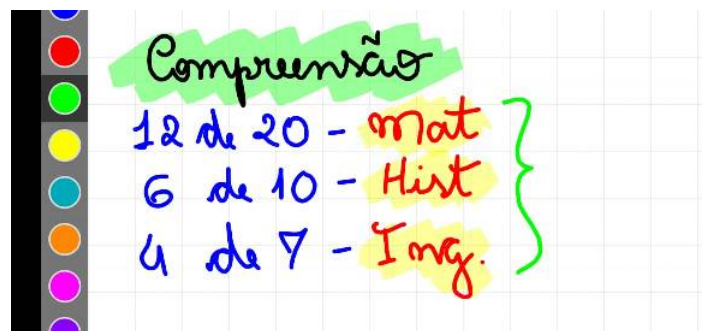 Compreensão
12 de 20 - Mat
6 de 10 - Hist
4 de 7 - Ing.